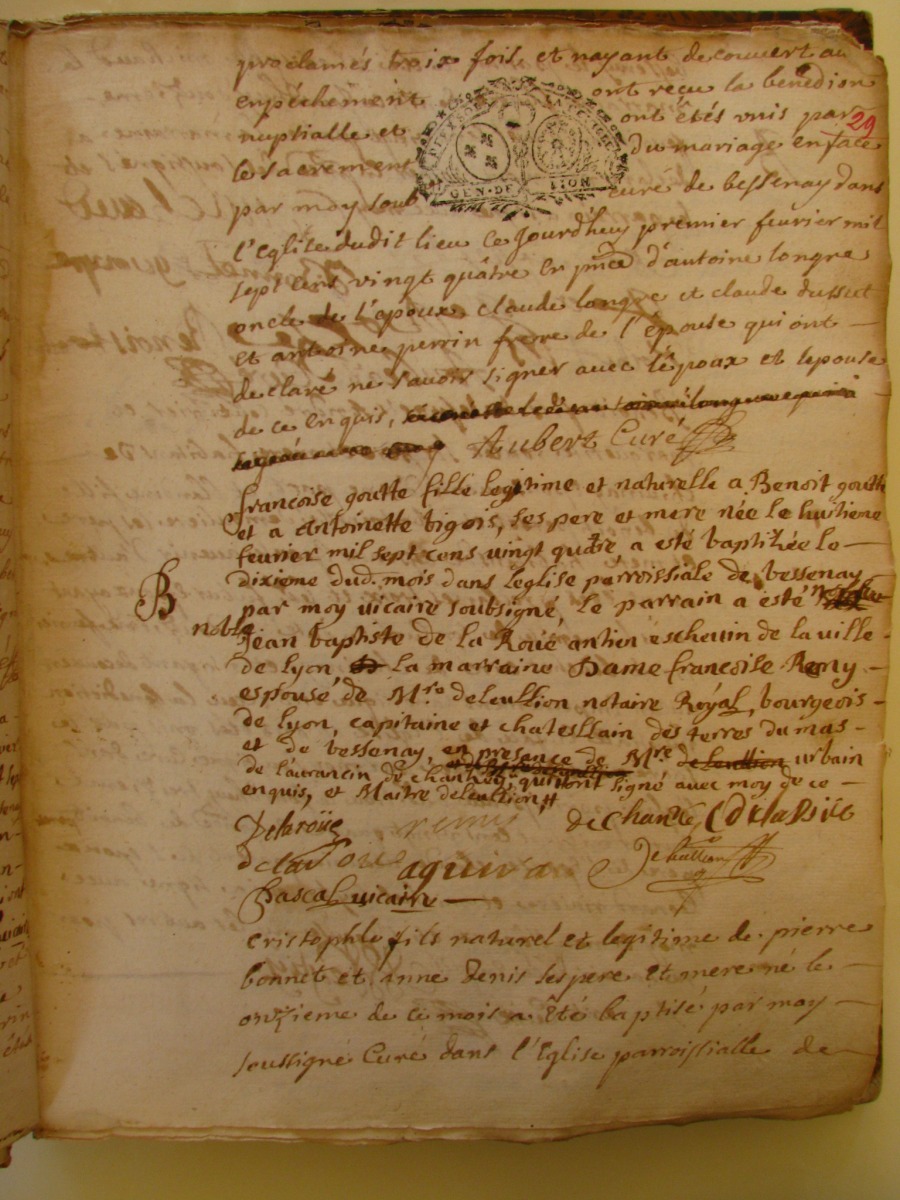 proclamés troix fois et nayant decouvert au
29
empéchement ont reçu la bénédion
nuptialle et ont étés unis par
le sacrement du mariage en face
GEN · DE LION
par moy sous curé de bessenay dans
l'Eglise dudit lieu ce jourdheuy premier feurier mil
sept cens vingt quâtre en pnce d'antoine longre
oncle de l'epoux, claude longre et claude dussut
et antoine perrin frere de l'épouse qui ont
declaré ne savoir signer avec lépoax et lepouse
de ce enquis,
Aubert Curé
francoise goutte fille legitime et naturelle a Benoit goutte
et a Antoinette bigois, ses pere et mere née le huitieme
feurier mil sept cens uingt quatre a esté baptizée le
dixieme dud. mois dans leglise parroissiale de bessenay
B
par moy uicaire soubsigné, le parrain a esté
noble
Jean baptiste de la Roüé antien escheuin de la uille
de lyon la marraine Dame francoise Remy
espouse de Mre deleullion notaire Royal, bourgeois
de lyon, capitaine et chatesllain des terres du mas
et de bessenay, en presance de Mre deleullion urbain
de laurancin de chanzey, qui ont signé avec moy de ce
enquis, et Maitre deleullion
Delaroüe remis de Chanzé,
aquira Deleullion
Pascal uicaire
Cristophle fils naturel et legitime de pierre
bonnet et anne denis ses pere et mere né le
onzieme de ce mois a été baptisé par moy
soussigné Curé dans l'Eglise parroissialle de